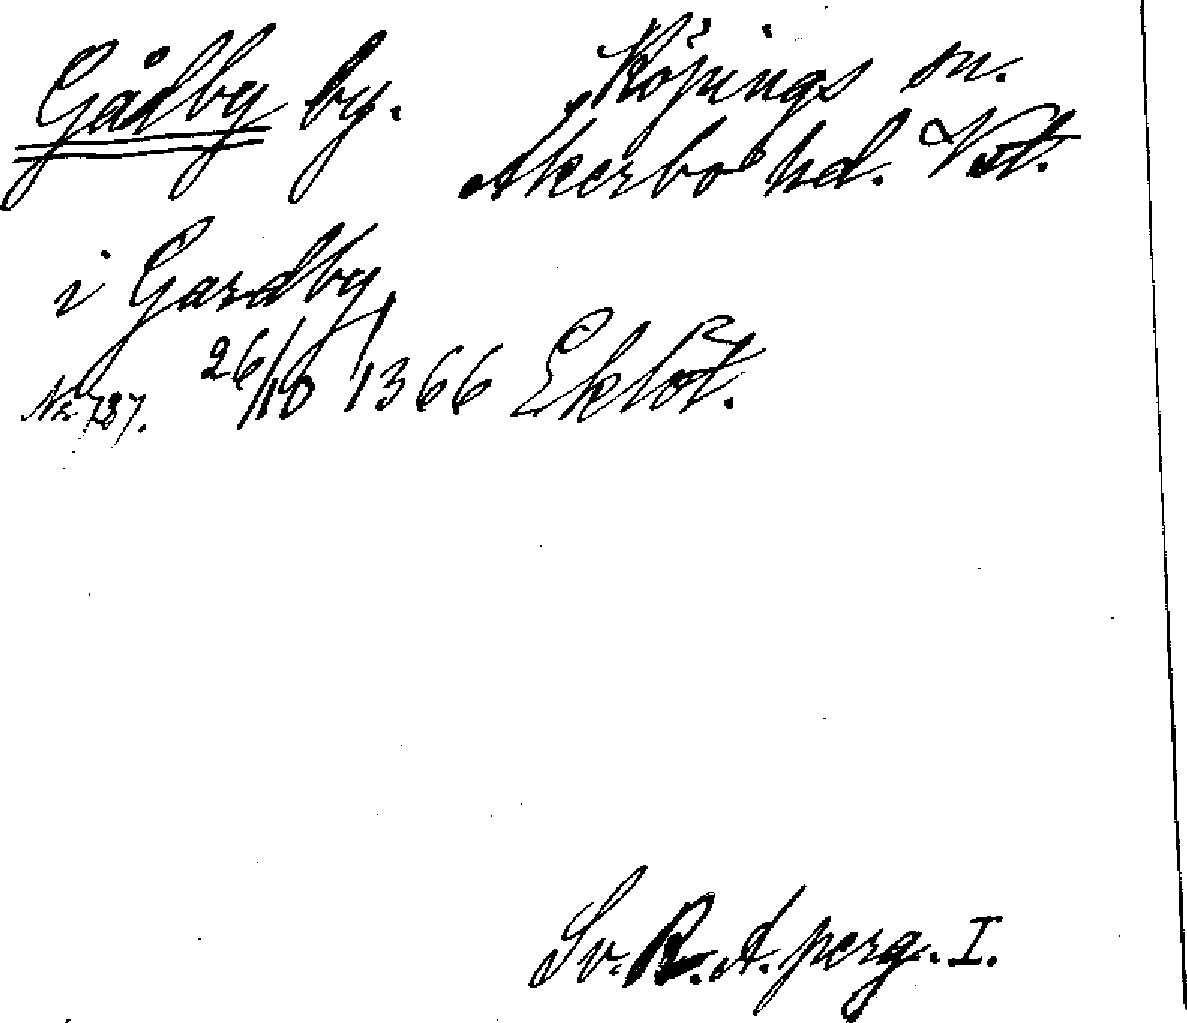 Gådby by. Köpings sn.
Åkerbo hd. Vstm.
i Gardby
Nr 787. 26/10 1366 Eklöt.
Sv. R. A. perg. I.